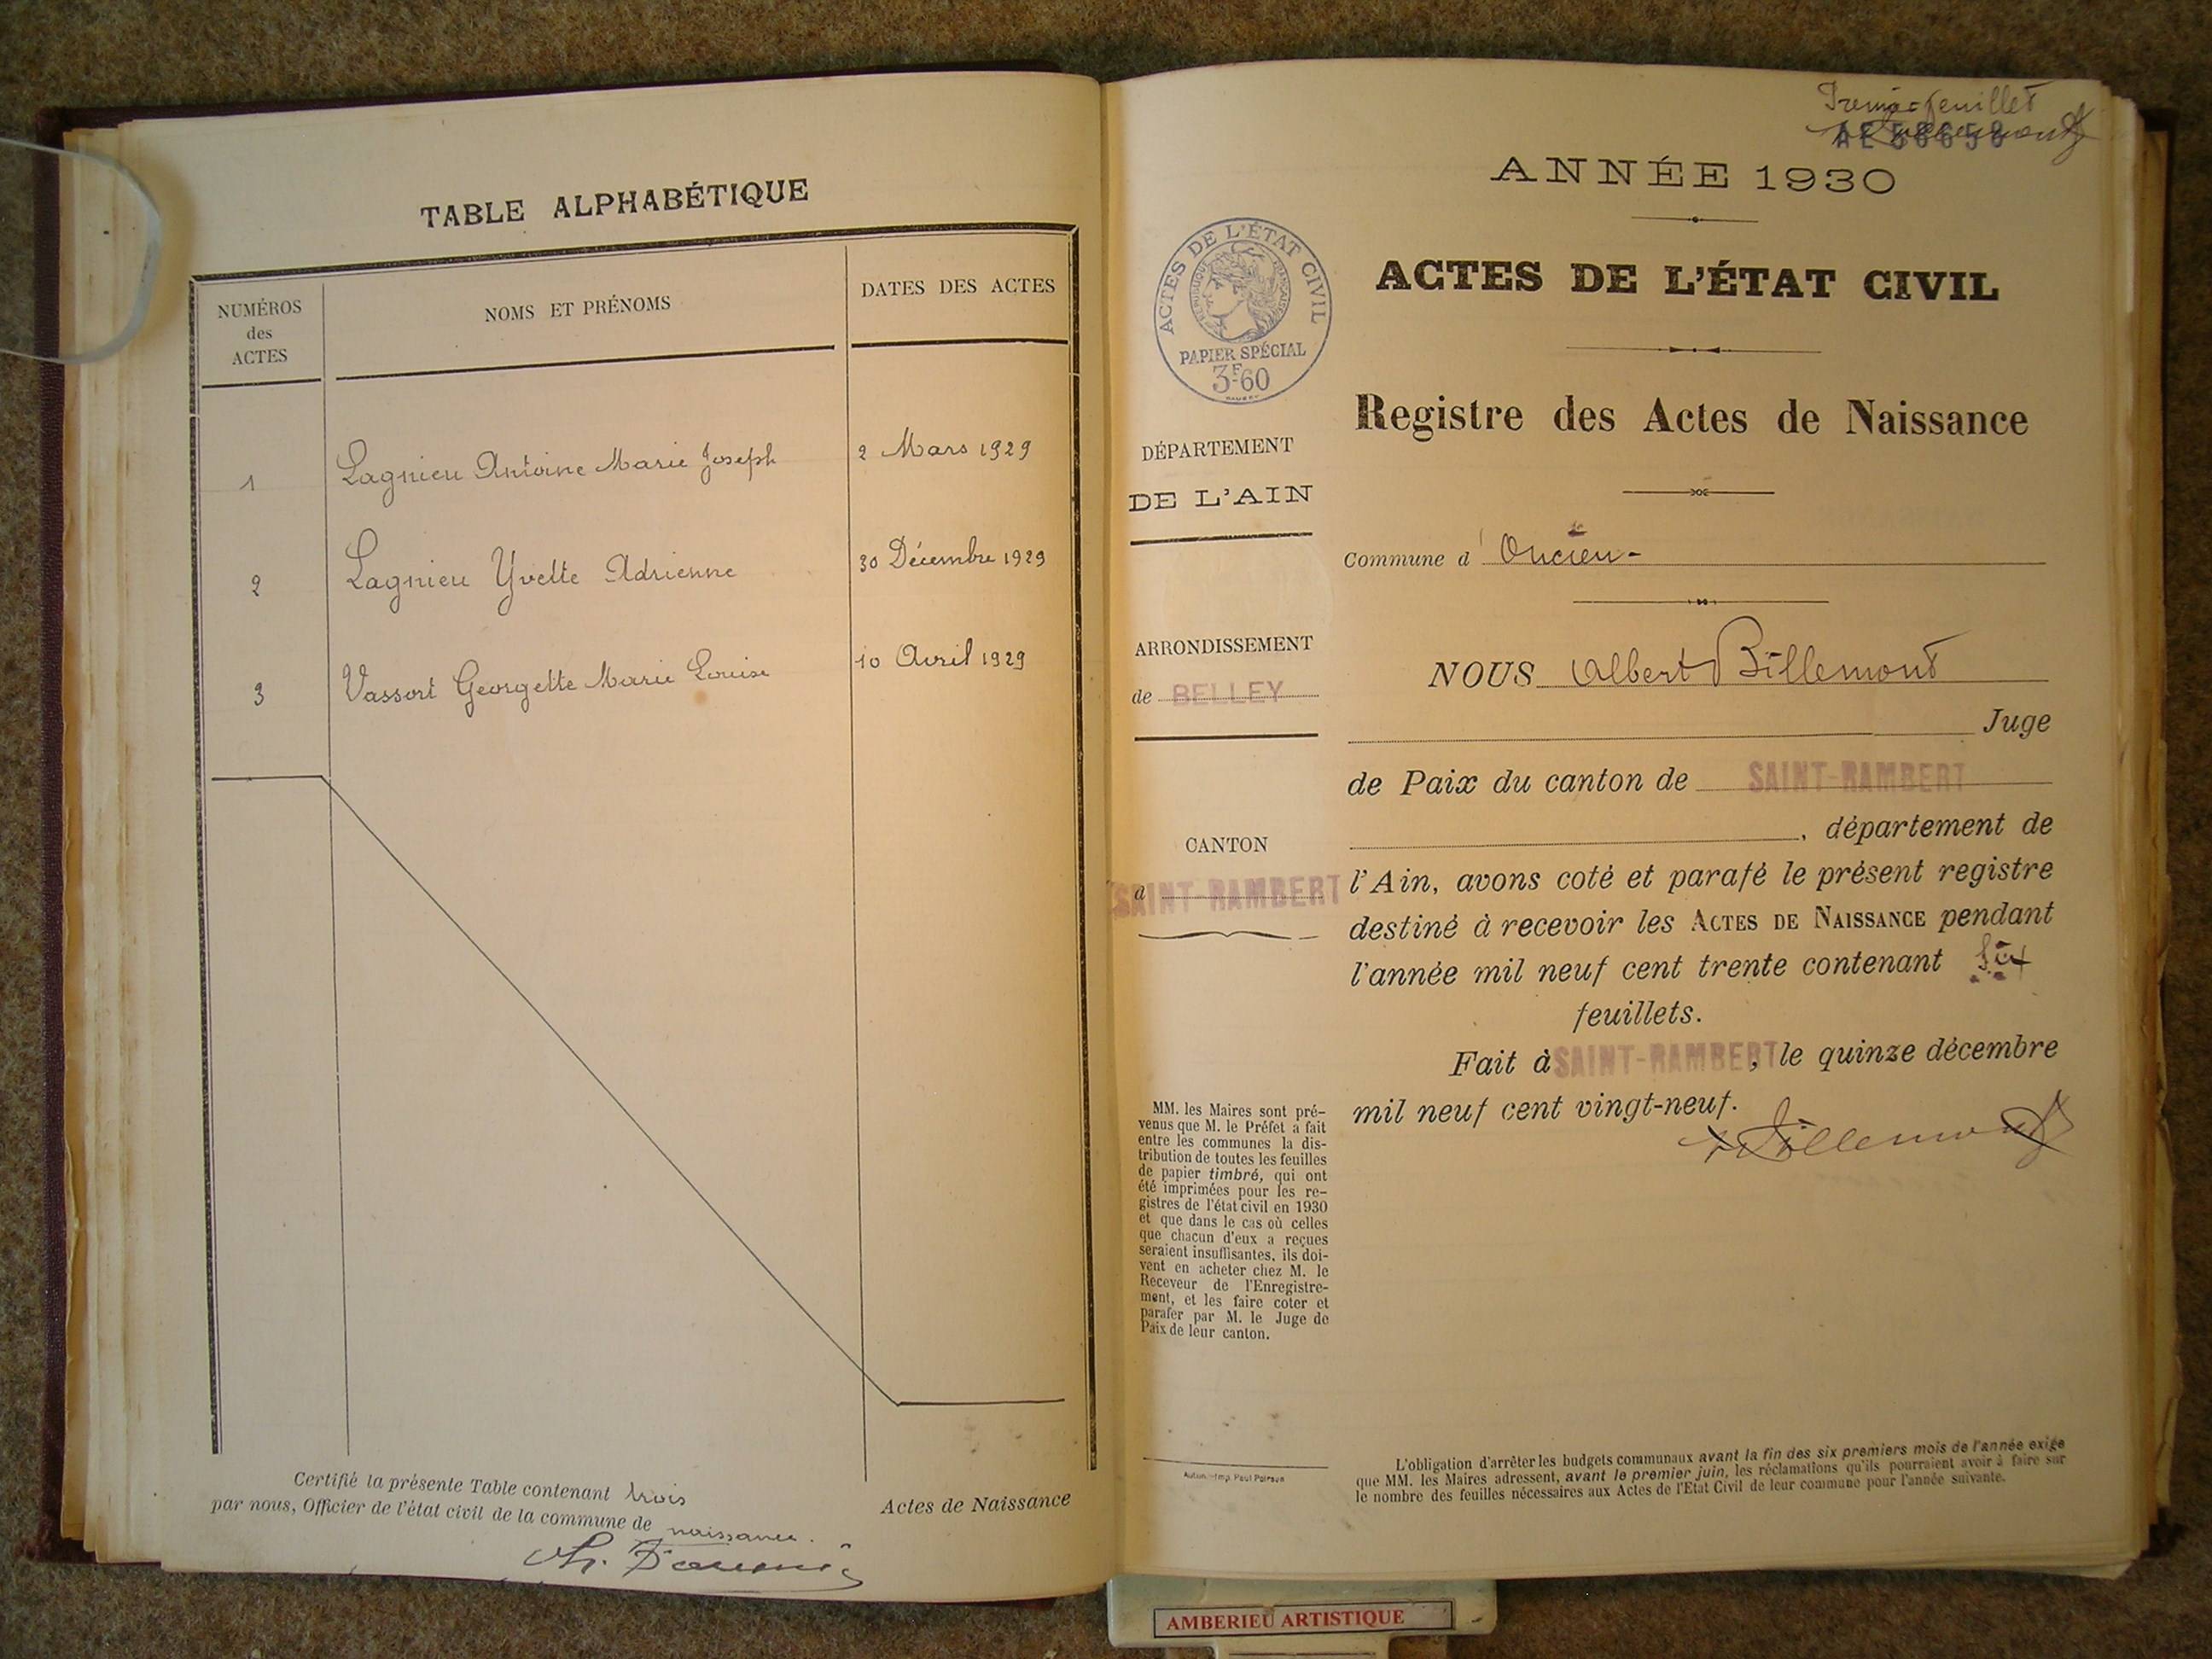 TABLE ALPHABÉTIQUE
NUMÉROS
des
ACTES
NOMS ET PRÉNOMS
DATES DES ACTES
1 Lagnieu Antoine Marie Joseph 2 Mars 1929
2 Lagnieu Yvette Adrienne 30 Décembre 1929
3 Vassort Georgette Marie Louise 10 Avril 1929
Certifié la présente Table contenant trois
Actes de Naissance
par nous, Officier de l'état civil de la commune de naissance.
feuillet
ANNÉE 1930
ACTES DE L'ÉTAT CIVIL
RÉPUBLIQUE FRANÇAISE
PAPIER SPÉCIAL
3F60
ACTES DE L'ÉTAT CIVIL
Registre des Actes de Naissance
DÉPARTEMENT
DE L'AIN
Commune d' Oncieu-
ARRONDISSEMENT
de BELLEY
CANTON
d SAINT-RAMBERT
NOUS Albert Billemont
Juge
de Paix du canton de SAINT-RAMBERT
, département de
l'Ain, avons coté et parafé le présent registre
destiné à recevoir les ACTES DE NAISSANCE pendant
l'année mil neuf cent trente contenant six
feuillets.
Fait à SAINT-RAMBERT, le quinze décembre
mil neuf cent vingt-neuf.
Billemont
MM. les Maires sont pré-
venus que M. le Préfet a fait
entre les communes la dis-
tribution de toutes les feuilles
de papier timbré, qui ont
été imprimées pour les re-
gistres de l'état civil en 1930
et que dans le cas où celles
que chacun d'eux a reçues
seraient insuffisantes, ils doi-
vent en acheter chez M. le
Receveur de l'Enregistre-
ment, et les faire coter et
parafer par M. le Juge de
Paix de leur canton.
L'obligation d'arrêter les budgets communaux avant la fin des six premiers mois de l'année exige
que MM. les Maires adressent, avant le premier juin, les réclamations qu'ils pourraient avoir à faire sur
le nombre des feuilles nécessaires aux Actes de l'État Civil de leur commune pour l'année suivante.
AMBERIEU ARTISTIQUE